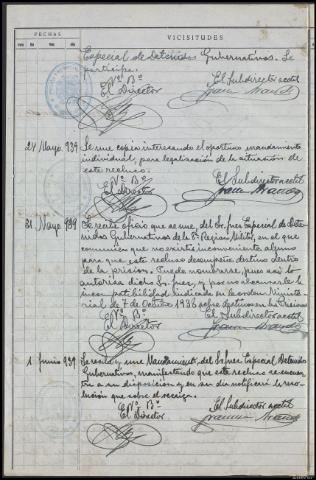 FECHAS
VICISITUDES
Especial de Detenidos Gubernativos. Se
participa.
Vº Bº
El Director
El Subdirector acctal
24 Mayo 939
Se une copia interesando el oportuno mandamiento
individual, para legalización de la situación de
este recluso.
Vº Bº
El Director
El Subdirector acctal
31 Mayo 939
Se recibe oficio que se une, del Sr. Juez Especial de Dete
nidos Gubernativos de la 8ª Region Militar, en el que
comunica que no existe inconveniente alguno
para que este recluso desempeñe destino dentro
de la prision. Puede nombrarse, pues así lo
autoriza dicho Sr. Juez, y por no alcanzarle la
incompatibilidad indicada en la orden Ministe
rial de 7 de Octubre 1938 sobre destinos en las Prisiones
Vº Bº
El Director
El Subdirector acctal
1 Junio 939
Se recibe y une Mandamiento, del Sr Juez Especial Detenidos
Gubernativos, manifestando que este recluso se encuen
tra a su disposicion y en su dia notificará la reso
lución que sobre el recaiga.
Vº Bº
El Director
El Subdirector acctal